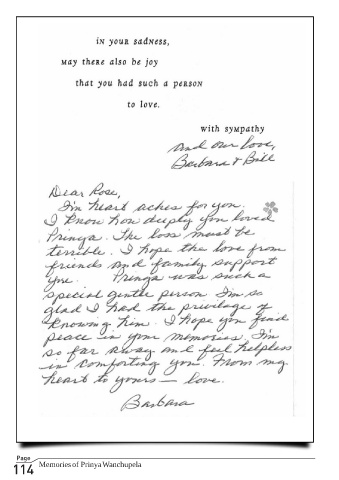 IN YOUR SADNESS,
MAY THERE ALSO BE JOY
THAT YOU HAD SUCH A PERSON
TO LOVE.
WITH SYMPATHY
and our love,
Barbara & Bill
Dear Rose,
I'm heart aches for you.
I know how deeply you loved
Prinya. The loss must be
terrible. I hope the love from
friends and family support
you. Prinya was such a
special gentle person I'm so
glad I had the privilege of
knowing him. I hope you find
peace in your memories. I'm
so far away and feel helpless
in comforting you. From my
heart to yours — love.
Barbara
Page
114
Memories of Prinya Wanchupela